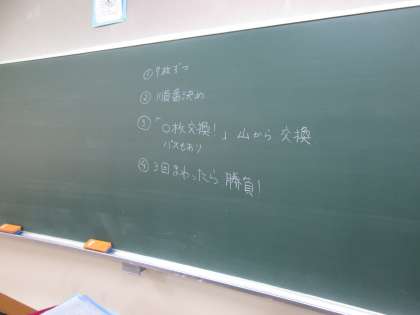 ① 9枚ずつ
② 順番決め
③ 「〇枚交換!」山から 交換
パスもあり
④ 3回まわったら 勝負!